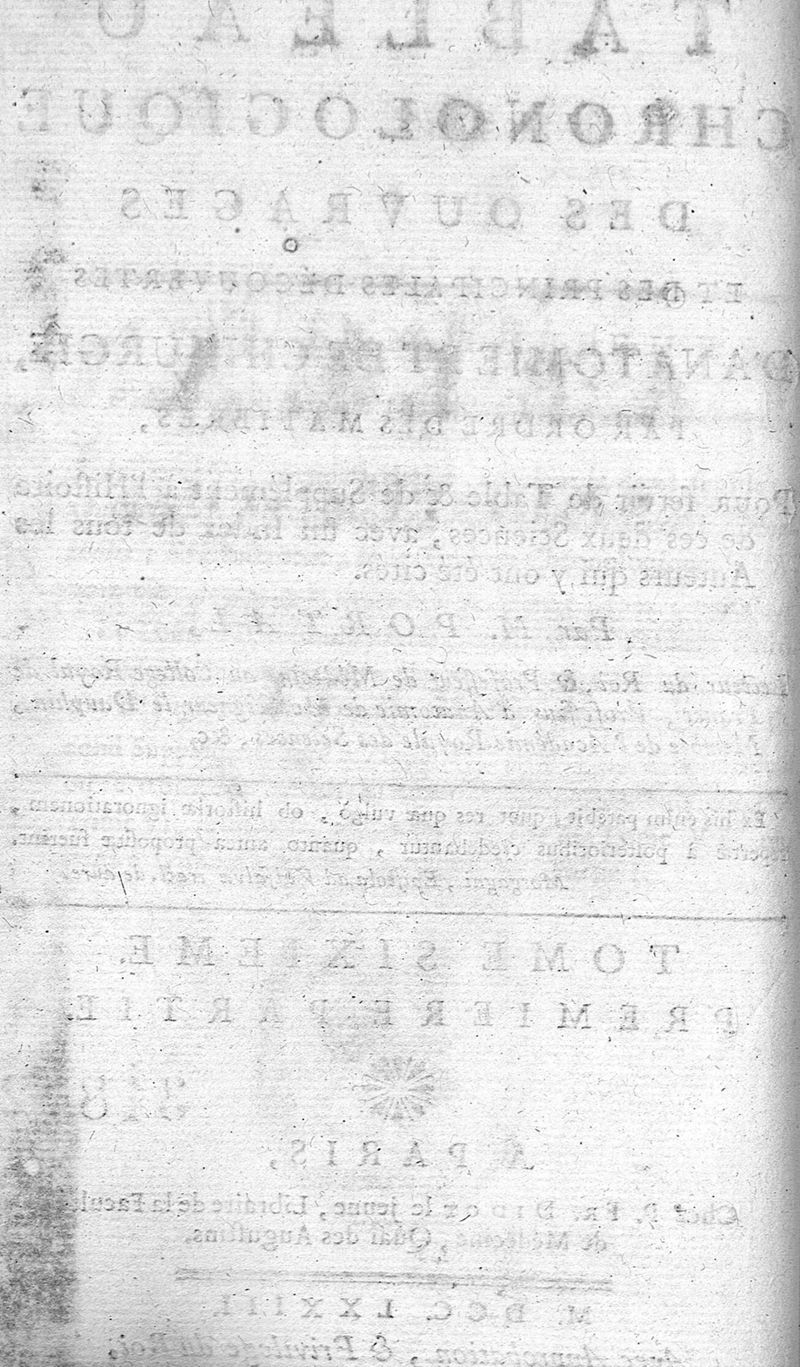 TABLEAU
CHRONOLOGIQUE
DES OUVRAGES
ET DES PRINCIPALES DÉCOUVERTES
D'ANATOMIE ET DE CHIRURGIE,
PAR ORDRE DES MATIERES,
Pour servir de Table & de Supplément à l'Histoire
de ces deux Sciences, avec un Index de tous les
Auteurs qui y ont été cités.
Par M. PORTAL,
du Roi, & Professeur de Médecine au College Royal de
Professeur d'Anatomie de Monseigneur le Dauphin,
de l'Académie Royale des Sciences, &c.
Ex his enim patebit, quot res quæ vulgò, ob historiæ ignorationem,
à posterioribus credebantur, quanto antea propositæ fuerint.
Morgagni, Epistola ad
TOME SIXIEME.
PREMIERE PARTIE.
A PARIS,
Chez P. Fr. Didot le jeune, Libraire de la Facul
de Médecine, Quai des Augustins.
M. DCC. LXXIII.
Avec Approbation, & Privilege du Roi,